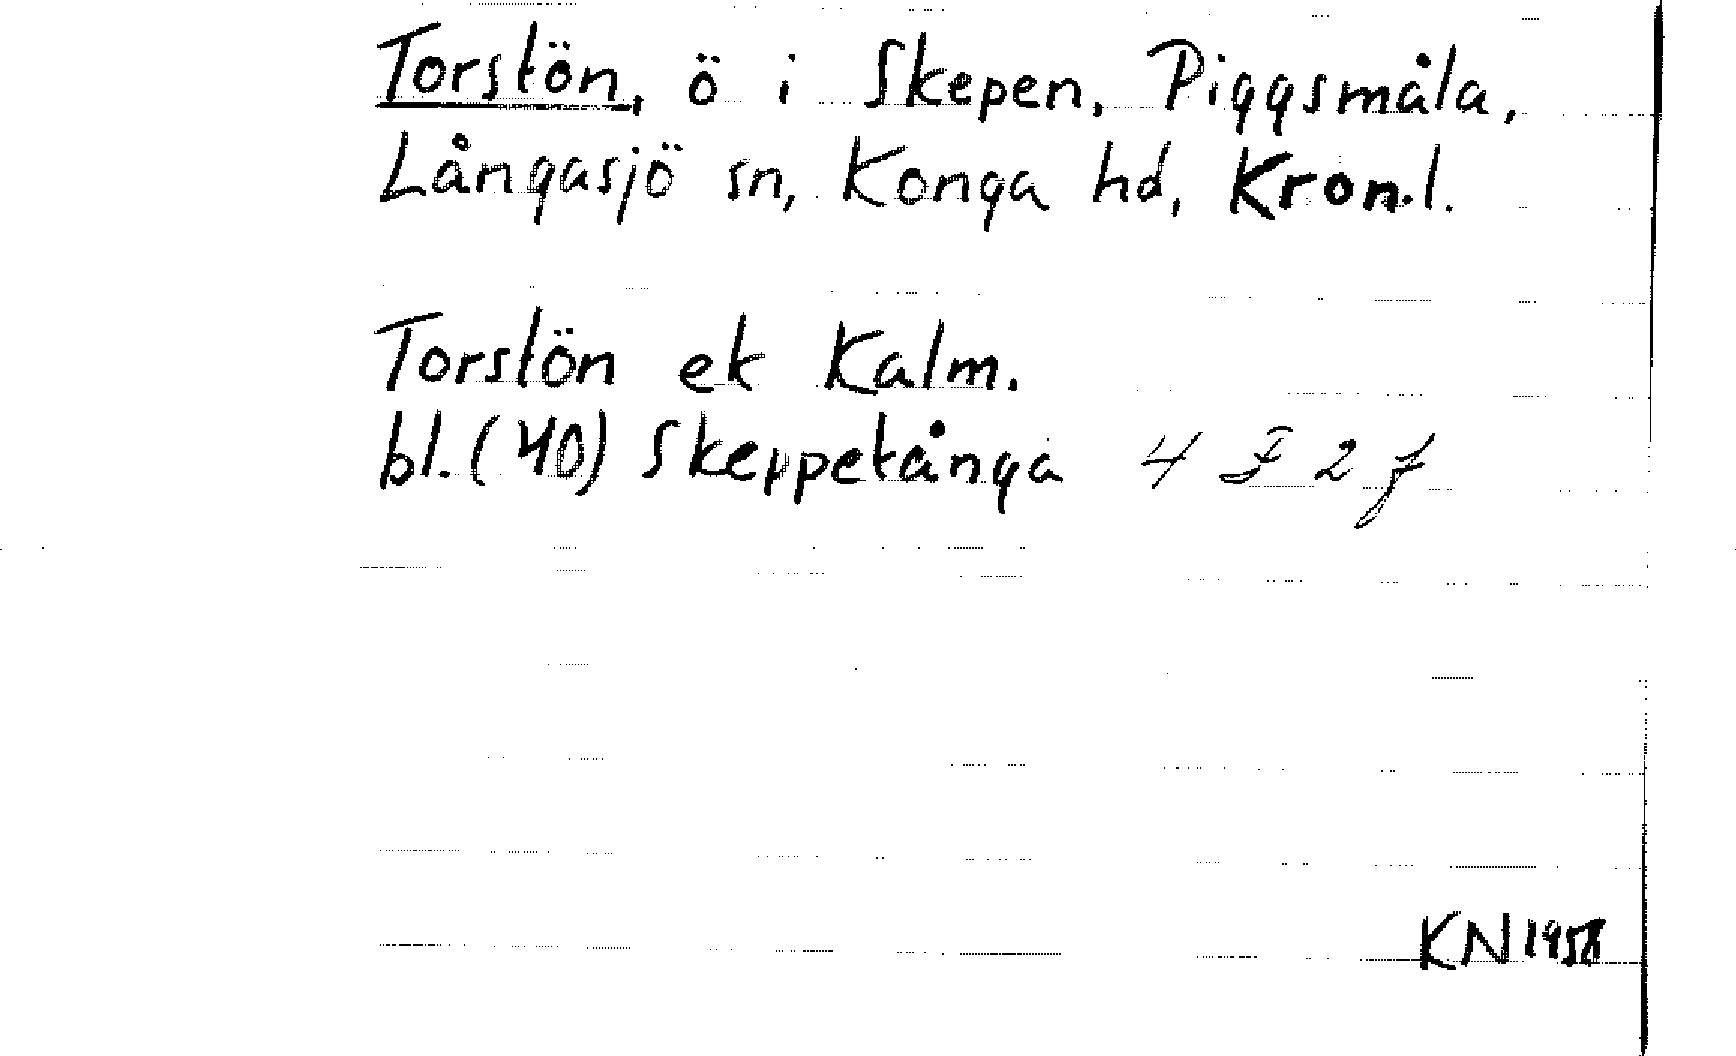 Torstön, ö i Skepen, Piggsmåla,
Långasjö sn, Konga hd, Kron.l.
Torstön ek Kalm.
bl. (40) Skeppetånga 4 F 2 f
KN 1958